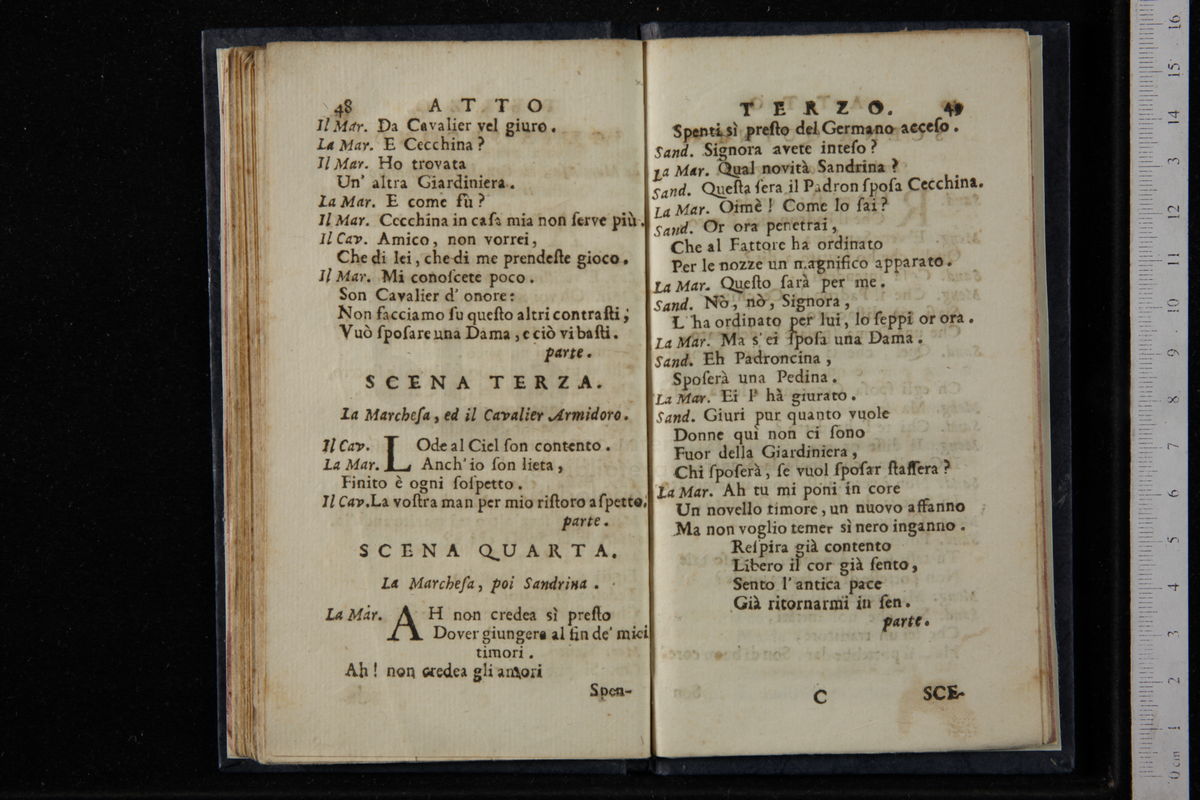 48 ATTO
Il Mar. Da Cavalier vel giuro.
La Mar. E Cecchina?
Il Mar. Ho trovata
Un' altra Giardiniera.
La Mar. E come fù?
Il Mar. Cecchina in caſa mia non ſerve più.
Il Cav. Amico, non vorrei,
Che di lei, che di me prendeſte gioco.
Il Mar. Mi conoſcete poco.
Son Cavalier d' onore:
Non facciamo ſu queſto altri contraſti;
Vuò ſpoſare una Dama, e ciò vi baſti.
parte.
SCENA TERZA.
La Marcheſa, ed il Cavalier Armidoro.
Il Cav. LOde al Ciel ſon contento.
La Mar. Anch' io ſon lieta,
Finito è ogni ſoſpetto.
Il Cav. La voſtra man per mio riſtoro aſpetto.
parte.
SCENA QUARTA.
La Marcheſa, poi Sandrina.
La Mar. AH non credea sì preſto
Dover giungere al fin de' miei
timori.
Ah! non credea gli amori
Spen-
TERZO. 49
Spenti sì preſto del Germano acceſo.
Sand. Signora avete inteſo?
La Mar. Qual novità Sandrina?
Sand. Queſta ſera il Padron ſpoſa Cecchina.
La Mar. Oimè! Come lo ſai?
Sand. Or ora penetrai,
Che al Fattore ha ordinato
Per le nozze un magnifico apparato.
La Mar. Queſto ſarà per me.
Sand. Nò, nò, Signora,
L' ha ordinato per lui, lo ſeppi or ora.
La Mar. Ma s' ei ſpoſa una Dama.
Sand. Eh Padroncina,
Spoſerà una Pedina.
La Mar. Ei l' hà giurato.
Sand. Giuri pur quanto vuole
Donne quì non ci ſono
Fuor della Giardiniera,
Chi ſpoſerà, ſe vuol ſpoſar ſtaſſera?
La Mar. Ah tu mi poni in core
Un novello timore, un nuovo affanno
Ma non voglio temer sì nero inganno.
Reſpira già contento
Libero il cor già ſento,
Sento l' antica pace
Già ritornarmi in ſen.
parte.
C SCE-
0 cm 1 2 3 4 5 6 7 8 9 10 11 12 13 14 15 16